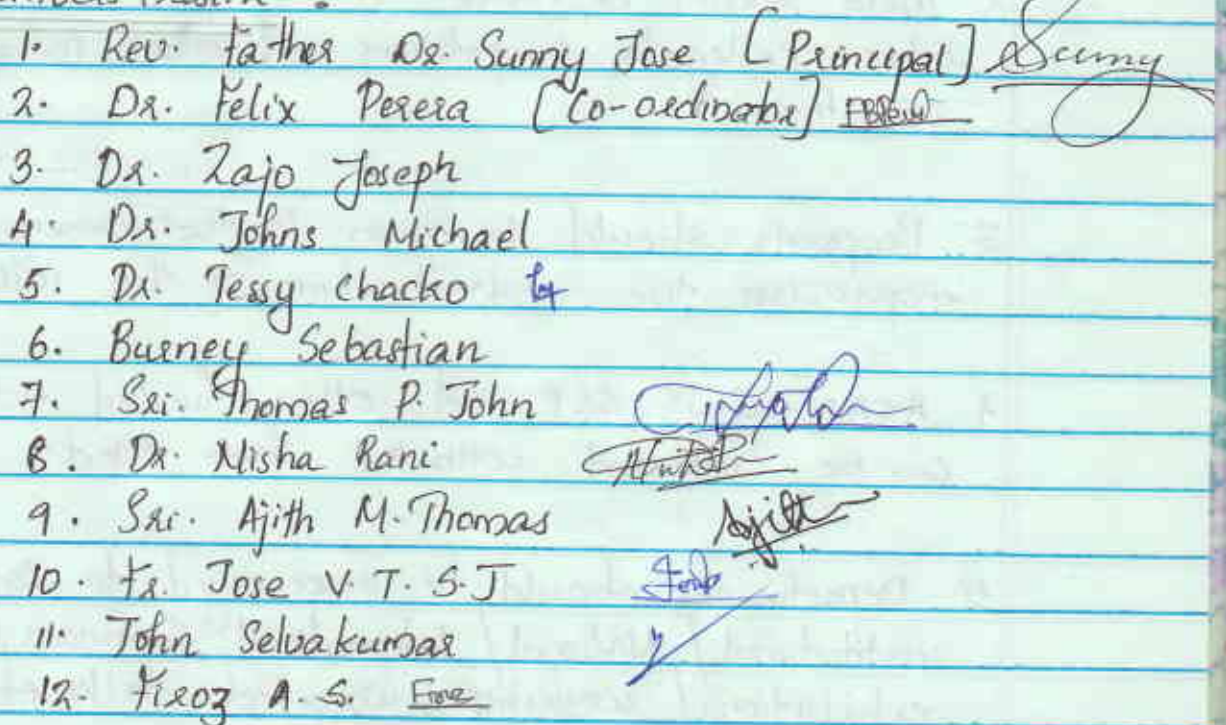 Members Present :
1. Rev. Father Dr. Sunny Jose [Principal] Sunny
2. Dr. Felix Perera [Co-ordinator]
3. Dr. Zajo Joseph
4. Dr. Johns Michael
5. Dr. Tessy Chacko
6. Burney Sebastian
7. Sri. Thomas P. John
8. Dr. Nisha Rani
9. Sri. Ajith M. Thomas Ajith
10. Fr. Jose V T. S. J
11. John Selvakumar
12. Firoz A. S.